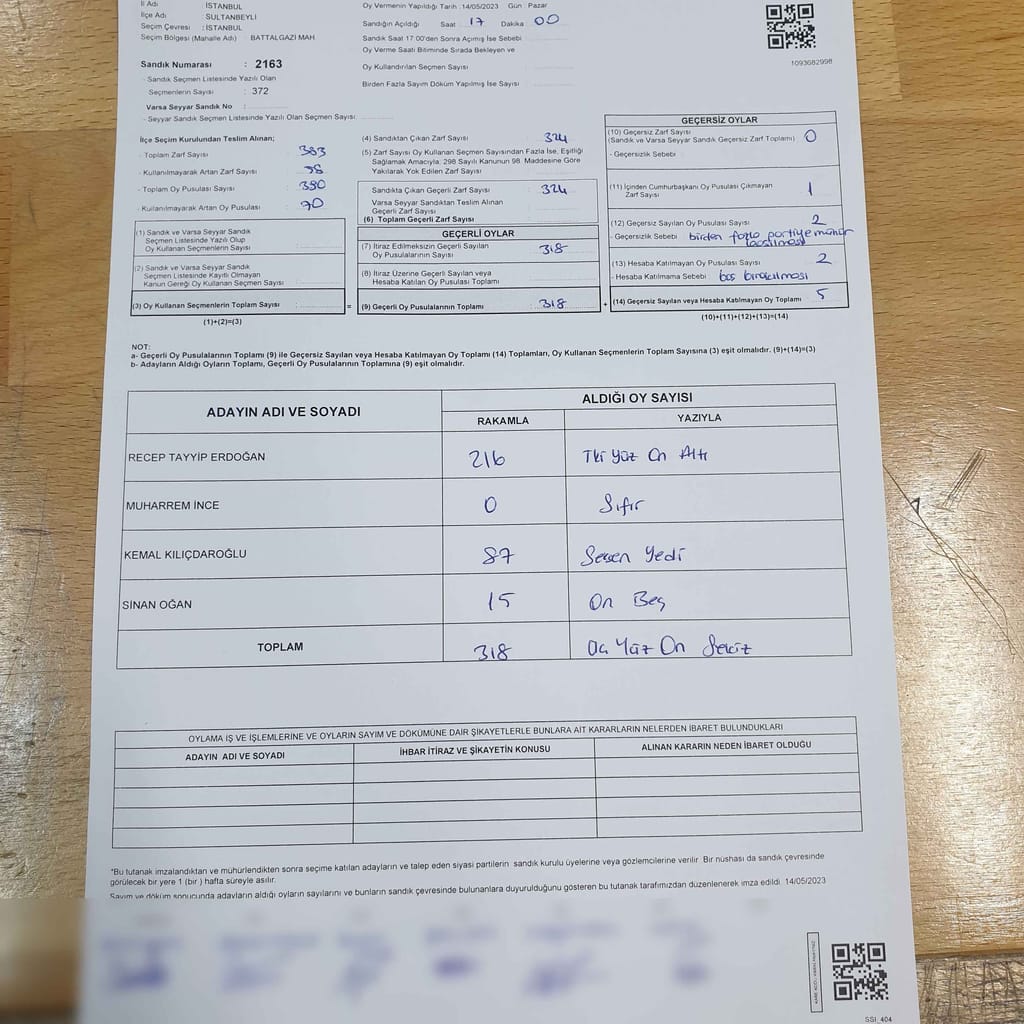 İl Adı : İSTANBUL
İlçe Adı : SULTANBEYLİ
Seçim Çevresi : İSTANBUL
Seçim Bölgesi (Mahalle Adı) : BATTALGAZİ MAH.
Sandık Numarası : 2163
- Sandık Seçmen Listesinde Yazılı Olan
Seçmenlerin Sayısı : 372
Varsa Seyyar Sandık No :
- Seyyar Sandık Seçmen Listesinde Yazılı Olan Seçmen Sayısı:
Oy Vermenin Yapıldığı Tarih :14/05/2023 Gün : Pazar
Sandığın Açıldığı Saat : 17 Dakika 00
Sandık Saat 17.00'den Sonra Açmış İse Sebebi
Oy Verme Saati Bitiminde Sırada Bekleyen ve
Oy Kullandırılan Seçmen Sayısı :
Birden Fazla Sayım Döküm Yapılmış İse Sayısı :
1093682998
İlçe Seçim Kurulundan Teslim Alınan;
- Toplam Zarf Sayısı : 383
- Kullanılmayarak Artan Zarf Sayısı :
- Toplam Oy Pusulası Sayısı : 390
- Kullanılmayarak Artan Oy Pusulası : 70
(1) Sandık ve Varsa Seyyar Sandık
Seçmen Listesinde Yazılı Olup
Oy Kullanan Seçmenlerin Sayısı :
(2) Sandık ve Varsa Seyyar Sandık
Seçmen Listesinde Kayıtlı Olmayan
Kanun Gereği Oy Kullanan Seçmen Sayısı :
(3) Oy Kullanan Seçmenlerin Toplam Sayısı : =
(1)+(2)=(3)
(4) Sandıktan Çıkan Zarf Sayısı : 324
(5) Zarf Sayısı Oy Kullanan Seçmen Sayısından Fazla İse, Eşitliği
Sağlamak Amacıyla, 298 Sayılı Kanunun 98. Maddesine Göre
Yakılarak Yok Edilen Zarf Sayısı :
Sandıkta Çıkan Geçerli Zarf Sayısı : 324
Varsa Seyyar Sandıktan Teslim Alınan
Geçerli Zarf Sayısı :
(6) Toplam Geçerli Zarf Sayısı :
GEÇERLİ OYLAR
(7) İtiraz Edilmeksizin Geçerli Sayılan
Oy Pusulalarının Sayısı : 318
(8) İtiraz Üzerine Geçerli Sayılan veya
Hesaba Katılan Oy Pusulası Toplamı :
(9) Geçerli Oy Pusulalarının Toplamı : 318 +
GEÇERSİZ OYLAR
(10) Geçersiz Zarf Sayısı
(Sandık ve Varsa Seyyar Sandık Geçersiz Zarf Toplamı) : 0
- Geçersizlik Sebebi :
(11) İçinden Cumhurbaşkanı Oy Pusulası Çıkmayan
Zarf Sayısı : 1
(12) Geçersiz Sayılan Oy Pusulası Sayısı : 2
- Geçersizlik Sebebi : birden fazla partiye mühür
basılması
(13) Hesaba Katılmayan Oy Pusulası Sayısı : 2
- Hesaba Katılmama Sebebi : boş bırakılması
(14) Geçersiz Sayılan veya Hesaba Katılmayan Oy Toplamı : 5
(10)+(11)+(12)+(13)=(14)
NOT:
a- Geçerli Oy Pusulalarının Toplamı (9) ile Geçersiz Sayılan veya Hesaba Katılmayan Oy Toplamı (14) Toplamları, Oy Kullanan Seçmenlerin Toplam Sayısına (3) eşit olmalıdır. (9)+(14)=(3)
b- Adayların Aldığı Oyların Toplamı, Geçerli Oy Pusulalarının Toplamına (9) eşit olmalıdır.
ADAYIN ADI VE SOYADI
ALDIĞI OY SAYISI
RAKAMLA YAZIYLA
RECEP TAYYİP ERDOĞAN 216 İki Yüz On Altı
MUHARREM İNCE 0 Sıfır
KEMAL KILIÇDAROĞLU 87 Seksen Yedi
SİNAN OĞAN 15 On Beş
TOPLAM 318 Üç Yüz On Sekiz
OYLAMA İŞ VE İŞLEMLERİNE VE OYLARIN SAYIM VE DÖKÜMÜNE DAİR ŞİKAYETLERLE BUNLARA AİT KARARLARIN NELERDEN İBARET BULUNDUKLARI
ADAYIN ADI VE SOYADI İHBAR İTİRAZ VE ŞİKAYETİN KONUSU ALINAN KARARIN NEDEN İBARET OLDUĞU
*Bu tutanak imzalandıktan ve mühürlendikten sonra seçime katılan adayların ve talep eden siyasi partilerin sandık kurulu üyelerine veya gözlemcilerine verilir. Bir nüshası da sandık çevresinde
görülecek bir yere 1 (bir ) hafta süreyle asılır.
Sayım ve döküm sonucunda adayların aldığı oyların sayılarını ve bunların sandık çevresinde bulunanlara duyurulduğunu gösteren bu tutanak tarafımızdan düzenlenerek imza edildi. 14/05/2023
SSI_404